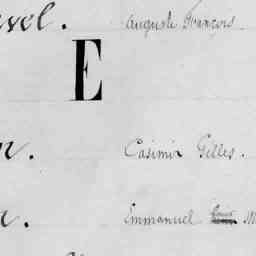 vel. Auguste François
E
n. Casimir Gilles.
n. Emmanuel M